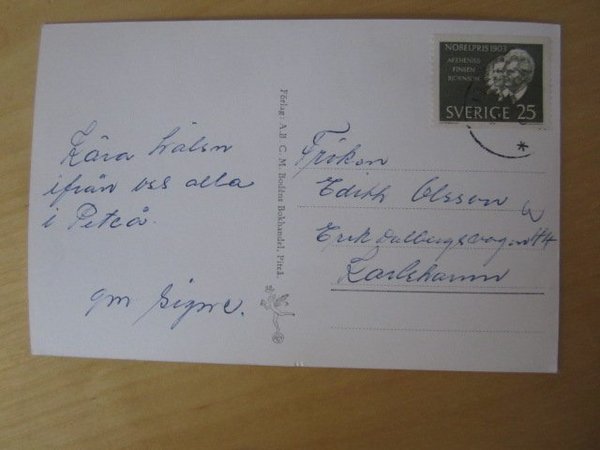 Kära hälsn
ifrån oss alla
i Piteå.
gm Signe.
Förlag: A.B. C. M. Bodéns Bokhandel, Piteå
NOBELPRIS 1903
ARRHENIUS
FINSEN
BJÖRNSON
SVERIGE 25
Fröken
Edith Olsson
Erik Dalbergsvägen
Karlshamn